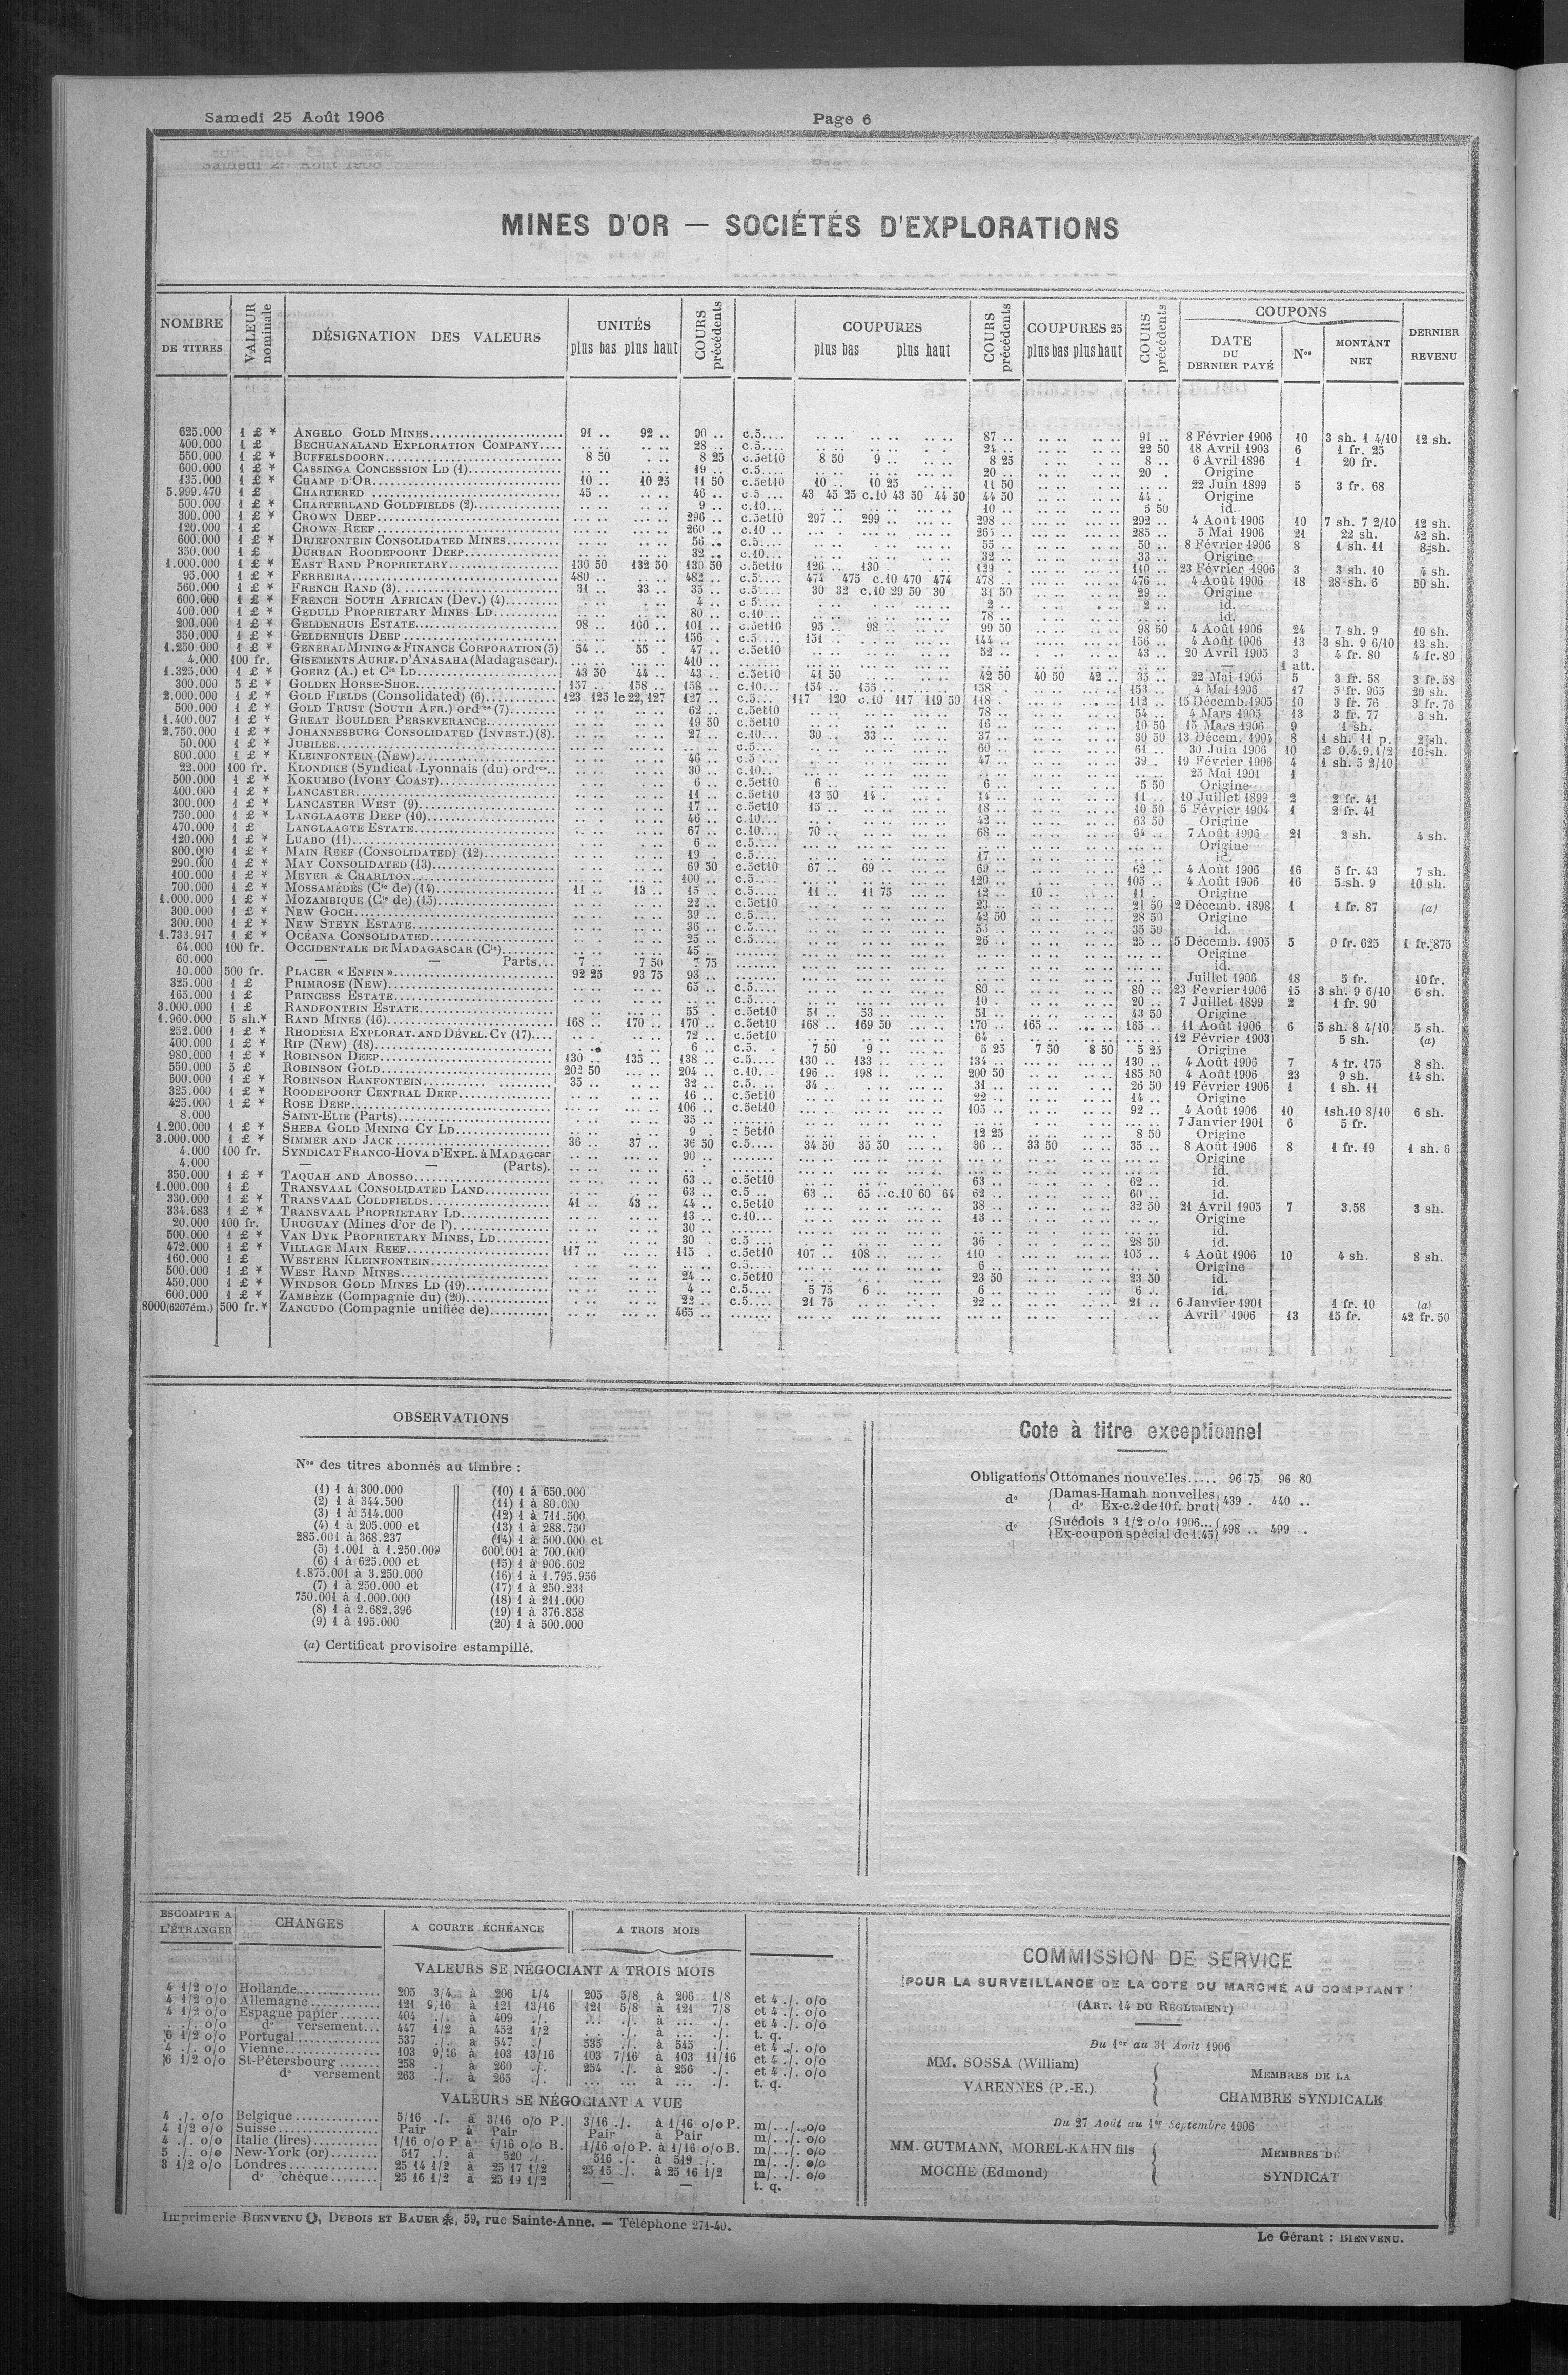 Samedi 25 Août 1906
Page 6
MINES D'OR — SOCIÉTÉS D'EXPLORATIONS
NOMBRE DE TITRES | VALEUR nominale | DÉSIGNATION DES VALEURS | UNITÉS plus bas plus haut | COURS précédents | COUPURES plus bas plus haut | COURS précédents | COUPURES 25 plus bas plus haut | COURS précédents | COUPONS DATE DU DERNIER PAYÉ | Nos | MONTANT NET | DERNIER REVENU
625.000 1 £ * ANGELO GOLD MINES 91 .. 92 .. 90 .. c.5.... 87 .. 91 .. 8 Février 1906 10 3 sh. 1 4/10 12 sh.
400.000 1 £ BECHUANALAND EXPLORATION COMPANY 28 .. c.5.... 24 .. 22 50 18 Avril 1903 6 1 fr. 25
550.000 1 £ * BUFFELSDOORN 8 50 8 25 c.5et10 8 50 9 .. 8 25 8 .. 6 Avril 1896 1 20 fr.
600.000 1 £ * CASSINGA CONCESSION LD (1) 19 .. c.5.... 20 .. 20 . Origine
135.000 1 £ * CHAMP D'OR 10 .. 10 25 11 50 c.5et10 10 .. 10 25 11 50 22 Juin 1899 5 3 fr. 68
5.999.470 1 £ CHARTERED 45 .. 46 .. c.5 ... 43 45 25 c.10 43 50 44 50 44 50 44 . Origine
500.000 1 £ * CHARTERLAND GOLDFIELDS (2) 9 .. c.10... 10 .. 5 50 id.
300.000 1 £ * CROWN DEEP 296 .. c.5et10 297 .. 299 .. 298 .. 292 .. 4 Août 1906 10 7 sh. 7 2/10 12 sh.
120.000 1 £ CROWN REEF 260 .. c.10 .. 265 .. 285 .. 5 Mai 1906 21 22 sh. 42 sh.
600.000 1 £ * DRIEFONTEIN CONSOLIDATED MINES 56 .. c.5.... 55 .. 50 .. 8 Février 1906 8 1 sh. 11 8 sh.
350.000 1 £ DURBAN ROODEPOORT DEEP 32 .. c.10... 32 .. 33 .. Origine
1.000.000 1 £ * EAST RAND PROPRIETARY 130 50 132 50 130 50 c.5et10 126 .. 130 .. 129 . 110 .. 23 Février 1906 3 3 sh. 10 4 sh.
95.000 1 £ * FERREIRA 480 .. 482 .. c.5.... 474 475 c.10 470 474 478 .. 476 .. 4 Août 1906 18 28 sh. 6 50 sh.
560.000 1 £ * FRENCH RAND (3) 31 .. 33 .. 35 .. c.5.... 30 32 c.10 29 50 30 31 50 29 .. Origine
600.000 1 £ * FRENCH SOUTH AFRICAN (Dev.) (4) 4 .. c 5... 2 .. 2 .. id.
400.000 1 £ * GEDULD PROPRIETARY MINES LD 80 .. c.10... 78 .. id.
200.000 1 £ * GELDENHUIS ESTATE 98 .. 100 .. 101 .. c.5et10 95 .. 98 .. 99 50 98 50 4 Août 1906 24 7 sh. 9 10 sh.
350.000 1 £ * GELDENHUIS DEEP 156 . c.5 ... 151 .. 144 .. 156 .. 4 Août 1906 13 3 sh. 9 6/10 13 sh.
1.250.000 1 £ * GENERAL MINING & FINANCE CORPORATION (5) 54 .. 55 . 47 .. c.5et10 52 .. 43 .. 20 Avril 1905 3 4 fr. 80 4 fr. 80
4.000 100 fr. GISEMENTS AURIF. D'ANASAHA (Madagascar). 410 .. — 1 att.
1.325.000 1 £ * GOERZ (A.) et Cie LD 43 50 44 .. 43 .. c.5et10 41 50 42 50 40 50 42 .. 35 .. 22 Mai 1905 5 3 fr. 58 3 fr. 58
300.000 5 £ * GOLDEN HORSE-SHOE 157 .. 158 .. 158 .. c.10... 154 .. 155 .. 158 153 .. 4 Mai 1906 17 5 fr. 965 20 sh.
2.000.000 1 £ * GOLD FIELDS (Consolidated) (6) 123 125 le 22, 127 127 .. c.5... 117 120 c.10 117 119 50 118 . 112 .. 15 Décemb. 1905 10 3 fr. 76 3 fr. 76
500.000 1 £ * GOLD TRUST (SOUTH AFR.) ordres (7) 62 .. c.5et10 78 .. 54 .. 4 Mars 1905 13 3 fr. 77 3 sh.
1.400.007 1 £ * GREAT BOULDER PERSEVERANCE 19 50 c.5et10 16 .. 10 50 15 Mars 1906 9 1 sh.
2.750.000 1 £ * JOHANNESBURG CONSOLIDATED (INVEST.) (8) 27 .. c.10... 30 .. 33 .. 37 .. 30 50 13 Décem. 1904 8 1 sh. 11 p. 2 sh.
50.000 1 £ * JUBILEE c.5... 60 .. 61 .. 30 Juin 1906 10 £ 0.4.9.1/2 10 sh.
800.000 1 £ * KLEINFONTEIN (NEW) 46 .. c.5 ... 47 .. 39 . 19 Février 1906 4 1 sh. 5 2/10
22.000 100 fr. KLONDIKE (Syndicat Lyonnais (du) ordres 30 .. c.10.. 25 Mai 1901 1
500.000 1 £ * KOKUMBO (IVORY COAST) 6 .. c.5et10 6 .. 6 .. 5 50 Origine
400.000 1 £ * LANCASTER 11 .. c.5et10 13 50 14 . 14 .. 11 .. 10 Juillet 1899 2 2 fr. 41
300.000 1 £ * LANCASTER WEST (9) 17 .. c.5et10 15 .. 18 .. 10 50 5 Février 1904 1 2 fr. 41
750.000 1 £ * LANGLAAGTE DEEP (10) 46 .. c.10... 42 .. 63 50 Origine
470.000 1 £ LANGLAAGTE ESTATE 67 .. c.10... 70 .. 68 .. 64 .. 7 Août 1906 21 2 sh. 4 sh.
120.000 1 £ * LUABO (11) 6 .. c.5.... Origine
800.000 1 £ * MAIN REEF (CONSOLIDATED) (12) 19 .. c.5.... 17 .. id.
290.000 1 £ * MAY CONSOLIDATED (13) 69 50 c.5et10 67 .. 69 .. 69 .. 62 .. 4 Août 1906 16 5 fr. 43 7 sh.
100.000 1 £ * MEYER & CHARLTON 100 .. c.5.... 120 .. 105 .. 4 Août 1906 16 5 sh. 9 10 sh.
700.000 1 £ * MOSSAMÉDÈS (Cie de) (14) 11 .. 13 .. 15 .. c.5.... 11 .. 11 75 12 .. 10 .. 11 Origine
1.000.000 1 £ * MOZAMBIQUE (Cie de) (15) 22 .. c.5et10 23 .. 21 50 2 Décemb. 1898 1 1 fr. 87 (a)
300.000 1 £ * NEW GOCH 39 .. c.5.... 42 50 28 50 Origine
300.000 1 £ * NEW STEYN ESTATE 36 .. c.5.... 53 .. 35 50 id.
1.733.917 1 £ * OCÉANA CONSOLIDATED 25 .. c.5.... 26 .. 25 .. 5 Décemb. 1905 5 0 fr. 625 1 fr. 875
64.000 100 fr. OCCIDENTALE DE MADAGASCAR (Cie) 45 . Origine
60.000 — — Parts... 7 .. 7 50 7 75 id.
10.000 500 fr. PLACER « ENFIN » 92 25 93 75 93 .. Juillet 1906 18 5 fr. 10 fr.
325.000 1 £ PRIMROSE (NEW) 65 .. c.5.... 80 .. 80 .. 23 Février 1906 15 3 sh. 9 6/10 6 sh.
165.000 1 £ PRINCESS ESTATE c.5.... 10 . 20 .. 7 Juillet 1899 2 1 fr. 90
3.000.000 1 £ RANDFONTEIN ESTATE 55 . c.5et10 51 .. 53 .. 51 .. 43 50 Origine
1.960.000 5 sh.* RAND MINES (16) 168 .. 170 .. 170 .. c.5et10 168 .. 169 50 170 .. 165 .. 165 .. 11 Août 1906 6 5 sh. 8 4/10 5 sh.
252.000 1 £ * RHODÉSIA EXPLORAT. AND DÉVEL. CY (17) 72 .. c.5et10 64 . 12 Février 1903 5 sh. (a)
400.000 1 £ * RIP (NEW) (18) 6 .. c.5. . 7 50 9 .. 5 25 7 50 8 50 5 25 Origine
980.000 1 £ * ROBINSON DEEP 130 .. 135 .. 138 .. c.5.... 130 .. 133 .. 134 .. 130 .. 4 Août 1906 7 4 fr. 175 8 sh.
550.000 5 £ ROBINSON GOLD 202 50 204 .. c.10... 196 .. 198 .. 200 50 185 50 4 Août 1906 23 9 sh. 14 sh.
500.000 1 £ * ROBINSON RANFONTEIN 35 .. 32 .. c.5. .. 34 .. 31 .. 26 50 19 Février 1906 1 1 sh. 11
325.000 1 £ * ROODEPOORT CENTRAL DEEP 16 .. c.5et10 22 .. 14 .. Origine
425.000 1 £ * ROSE DEEP 106 .. c.5et10 105 .. 92 .. 4 Août 1906 10 1sh.10 8/10 6 sh.
8.000 SAINT-ELIE (Parts) 35 .. 7 Janvier 1901 6 5 fr.
1.200.000 1 £ * SHEBA GOLD MINING CY LD 9 . c 5et10 12 25 8 50 Origine
3.000.000 1 £ * SIMMER AND JACK 36 .. 37 .. 36 50 c.5.... 34 50 35 50 36 .. 33 50 35 .. 8 Août 1906 8 1 fr. 19 1 sh. 6
4.000 100 fr. SYNDICAT FRANCO-HOVA D'EXPL. à MADAGCar 90 .. Origine
4.000 — — (Parts). id.
350.000 1 £ * TAQUAH AND ABOSSO 63 .. c.5et10 63 .. 62 .. id.
1.000.000 1 £ TRANSVAAL CONSOLIDATED LAND 63 .. c.5 .. 63 .. 65 ..c.10 60 64 62 .. 60 .. id.
330.000 1 £ * TRANSVAAL COLDFIELDS 41 .. 43 .. 44 .. c.5et10 38 .. 32 50 21 Avril 1905 7 3.58 3 sh.
334.683 1 £ * TRANSVAAL PROPRIETARY LD 13 .. c.10... 13 .. Origine
20.000 100 fr. URUGUAY (Mines d'or de l') 30 .. id.
500.000 1 £ * VAN DYK PROPRIETARY MINES, LD 30 c.5 ... 36 28 50 id.
472.000 1 £ * VILLAGE MAIN REEF 117 .. 115 . c.5et10 107 .. 108 .. 110 . 105 .. 4 Août 1906 10 4 sh. 8 sh.
160.000 1 £ WESTERN KLEINFONTEIN c.5... 6 .. Origine
500.000 1 £ * WEST RAND MINES 24 .. c.5et10 23 50 23 50 id.
450.000 1 £ * WINDSOR GOLD MINES LD (19) 4 .. c.5.... 5 75 6 .. 6 .. 6 .. id.
600.000 1 £ * ZAMBÈZE (Compagnie du) (20) 22 .. c.5.... 21 75 22 .. 21 .. 6 Janvier 1901 1 fr. 10 (a)
8000(6207ém.) 500 fr.* ZANCUDO (Compagnie unifiée de) 465 .. Avril 1906 13 15 fr. 42 fr. 50
OBSERVATIONS
Nos des titres abonnés au timbre :
(1) 1 à 300.000
(2) 1 à 344.500
(3) 1 à 514.000
(4) 1 à 205.000 et
285.001 à 368.237
(5) 1.001 à 1.250.000
(6) 1 à 625.000 et
1.875.001 à 3.250.000
(7) 1 à 250.000 et
750.001 à 1.000.000
(8) 1 à 2.682.396
(9) 1 à 195.000
(10) 1 à 650.000
(11) 1 à 80.000
(12) 1 à 711.500
(13) 1 à 288.750
(14) 1 à 500.000 et
600.001 à 700.000
(15) 1 à 906.602
(16) 1 à 1.795.956
(17) 1 à 250.231
(18) 1 à 211.000
(19) 1 à 376.858
(20) 1 à 500.000
(a) Certificat provisoire estampillé.
Cote à titre exceptionnel
Obligations Ottomanes nouvelles..... 96 75 96 80
do {Damas-Hamah nouvelles
do Ex-c.2 de 10 f. brut} 439 . 440 ..
do {Suédois 3 1/2 o/o 1906...
{Ex-coupon spécial de 1.45} 498 .. 499 .
ESCOMPTE A L'ÉTRANGER | CHANGES | A COURTE ÉCHÉANCE | A TROIS MOIS
VALEURS SE NÉGOCIANT A TROIS MOIS
4 1/2 o/o Hollande 205 3/4 à 206 1/4 205 5/8 à 206 1/8 et 4 ./. o/o
4 1/2 o/o Allemagne 121 9/16 à 121 13/16 121 5/8 à 121 7/8 et 4 ./. o/o
4 1/2 o/o Espagne papier 404 ./. à 409 ./. ... ./. à ... ./. et 4 ./. o/o
. ./. o/o do versement 447 1/2 à 452 1/2 ... ./. à ... ./. t. q.
6 1/2 o/o Portugal 537 ./. à 547 ./. 535 ./. à 545 ./. et 4 ./. o/o
4 ./. o/o Vienne 103 9/16 à 103 13/16 103 7/16 à 103 11/16 et 4 ./. o/o
6 1/2 o/o St-Pétersbourg 258 ./. à 260 ./. 254 ./. à 256 ./. et 4 ./. o/o
do versement 263 ./. à 265 ./. ... ... à ... ./. t. q.
VALEURS SE NÉGOCIANT A VUE
4 ./. o/o Belgique 5/16 ./. à 3/16 o/o P. 3/16 ./. à 1/16 o/o P. m/. ./. o/o
4 1/2 o/o Suisse Pair à Pair Pair à Pair m/. ./. o/o
4 ./. o/o Italie (lires) 1/16 o/o P à 1/16 o/o B. 1/16 o/o P. à 1/16 o/o B. m/. ./. o/o
5 ./. o/o New-York (or) 517 ./. à 520 ./. 516 ./. à 519 ./. m/. ./. o/o
3 1/2 o/o Londres 25 14 1/2 à 25 17 1/2 25 15 ./. à 25 16 1/2 m/. ./. o/o
do chèque 25 16 1/2 à 25 19 1/2 — — t. q.
COMMISSION DE SERVICE
POUR LA SURVEILLANCE DE LA COTE DU MARCHÉ AU COMPTANT
(ART. 14 DU RÈGLEMENT)
Du 1er au 31 Août 1906
MM. SOSSA (William)
VARENNES (P.-E.)
MEMBRES DE LA
CHAMBRE SYNDICALE
Du 27 Août au 1er Septembre 1906
MM. GUTMANN, MOREL-KAHN fils
MOCHE (Edmond)
MEMBRES DU
SYNDICAT
Imprimerie BIENVENU, DUBOIS ET BAUER, 59, rue Sainte-Anne. — Téléphone 271-40.
Le Gérant : BIENVENU.